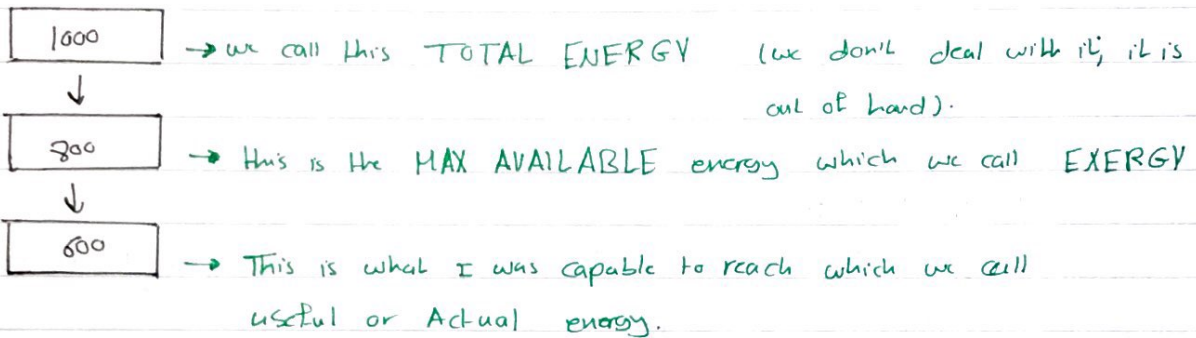 1000 → we call this TOTAL ENERGY (we don't deal with it; it is
out of hand).
↓
800 → this is the MAX AVAILABLE energy which we call EXERGY
↓
600 → This is what I was capable to reach which we call
useful or Actual energy.